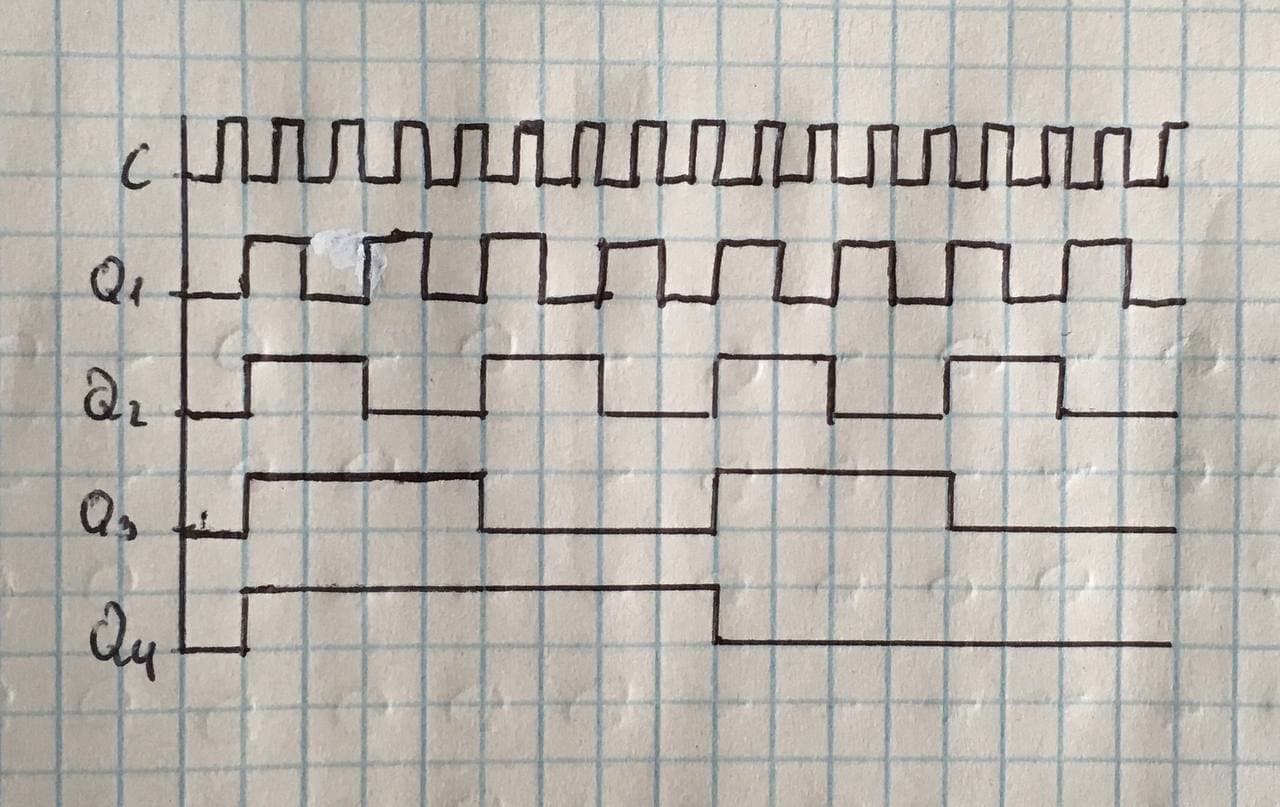 C
Q1
Q2
Q3
Q4